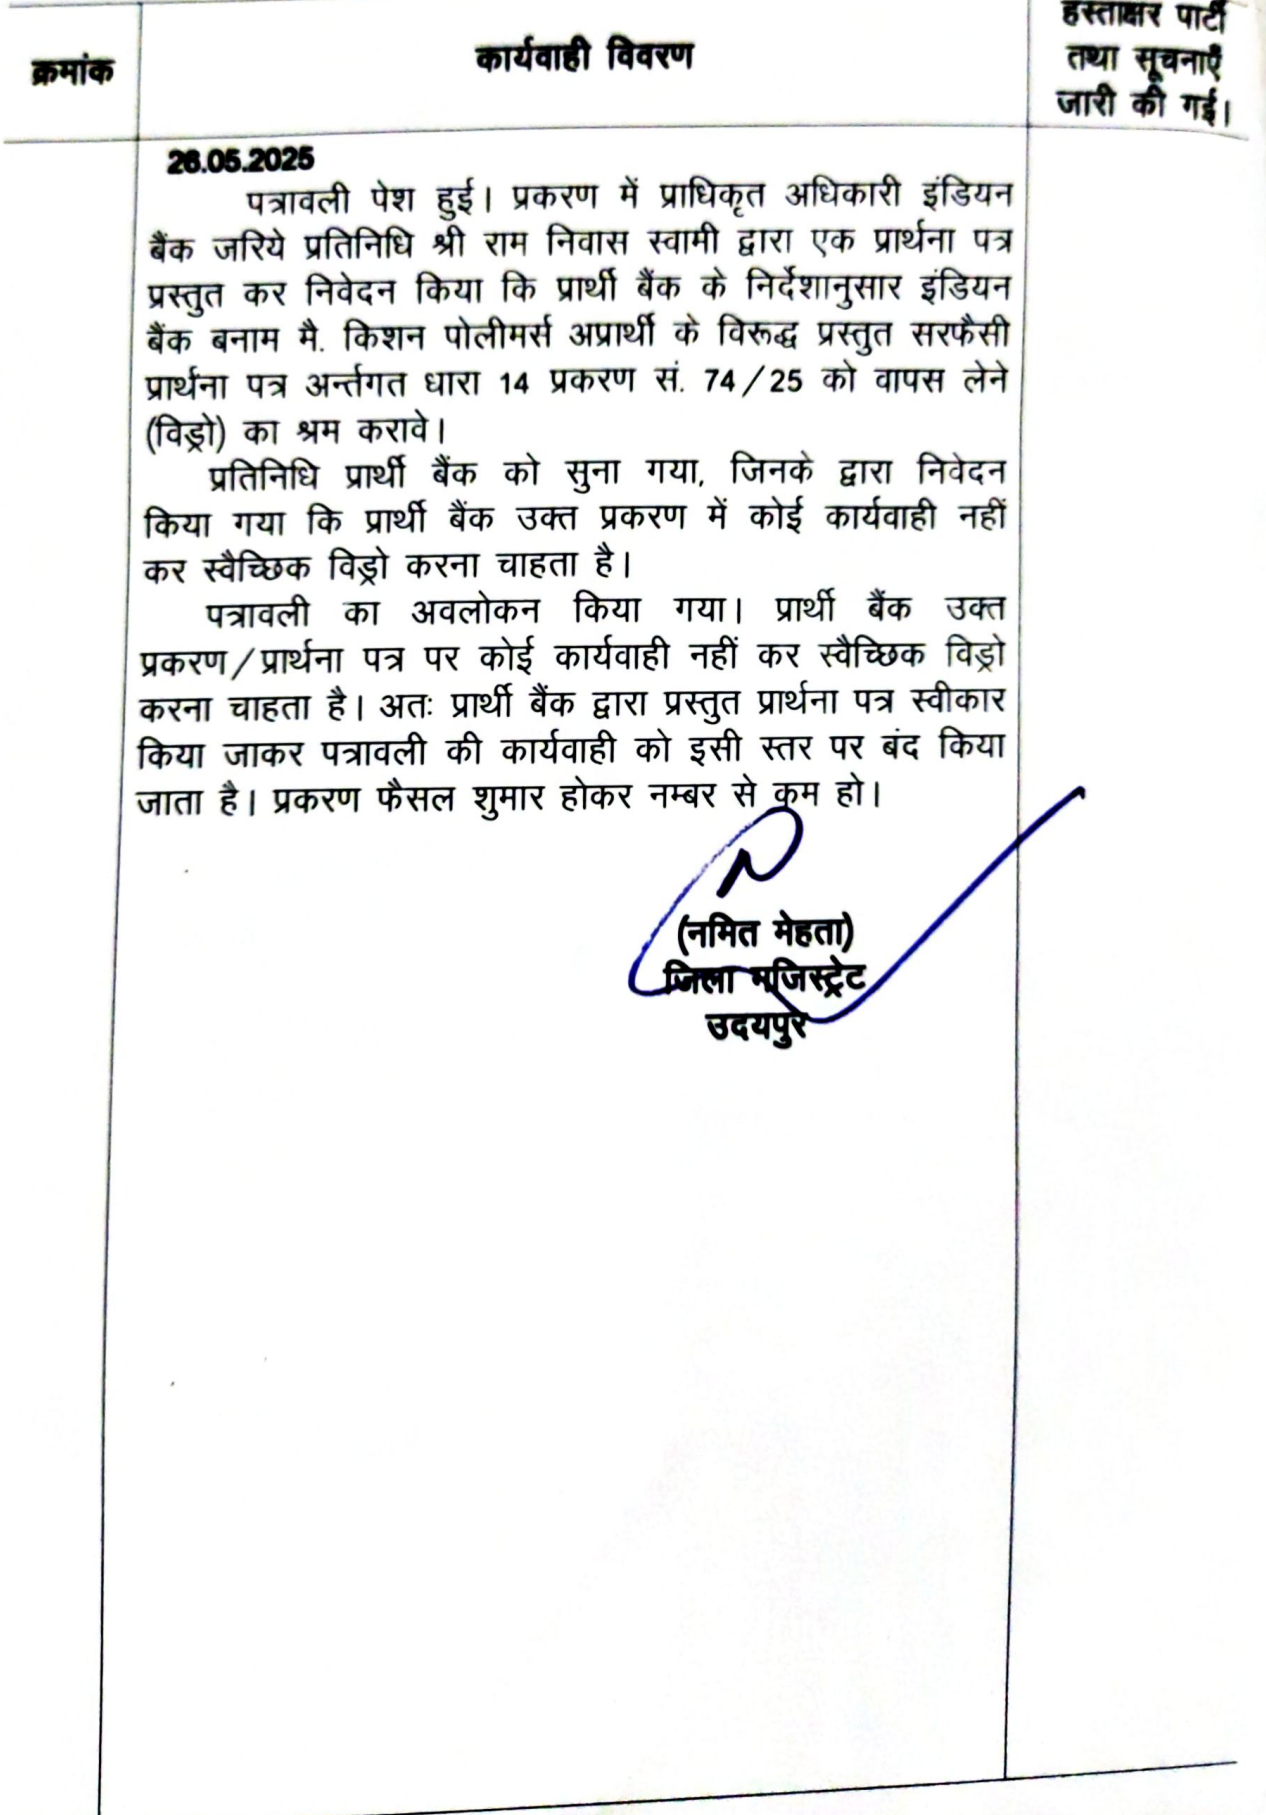 क्रमांक
कार्यवाही विवरण
हस्ताक्षर पार्टी
तथा सूचनाएँ
जारी की गई।
26.05.2025
पत्रावली पेश हुई। प्रकरण में प्राधिकृत अधिकारी इंडियन
बैंक जरिये प्रतिनिधि श्री राम निवास स्वामी द्वारा एक प्रार्थना पत्र
प्रस्तुत कर निवेदन किया कि प्रार्थी बैंक के निर्देशानुसार इंडियन
बैंक बनाम मै. किशन पोलीमर्स अप्रार्थी के विरूद्ध प्रस्तुत सरफैसी
प्रार्थना पत्र अर्न्तगत धारा 14 प्रकरण सं. 74/25 को वापस लेने
(विड्रो) का श्रम करावे।
प्रतिनिधि प्रार्थी बैंक को सुना गया, जिनके द्वारा निवेदन
किया गया कि प्रार्थी बैंक उक्त प्रकरण में कोई कार्यवाही नहीं
कर स्वैच्छिक विड्रो करना चाहता है।
पत्रावली का अवलोकन किया गया। प्रार्थी बैंक उक्त
प्रकरण/प्रार्थना पत्र पर कोई कार्यवाही नहीं कर स्वैच्छिक विड्रो
करना चाहता है। अतः प्रार्थी बैंक द्वारा प्रस्तुत प्रार्थना पत्र स्वीकार
किया जाकर पत्रावली की कार्यवाही को इसी स्तर पर बंद किया
जाता है। प्रकरण फैसल शुमार होकर नम्बर से कम हो।
(नमित मेहता)
जिला मजिस्ट्रेट
उदयपुर